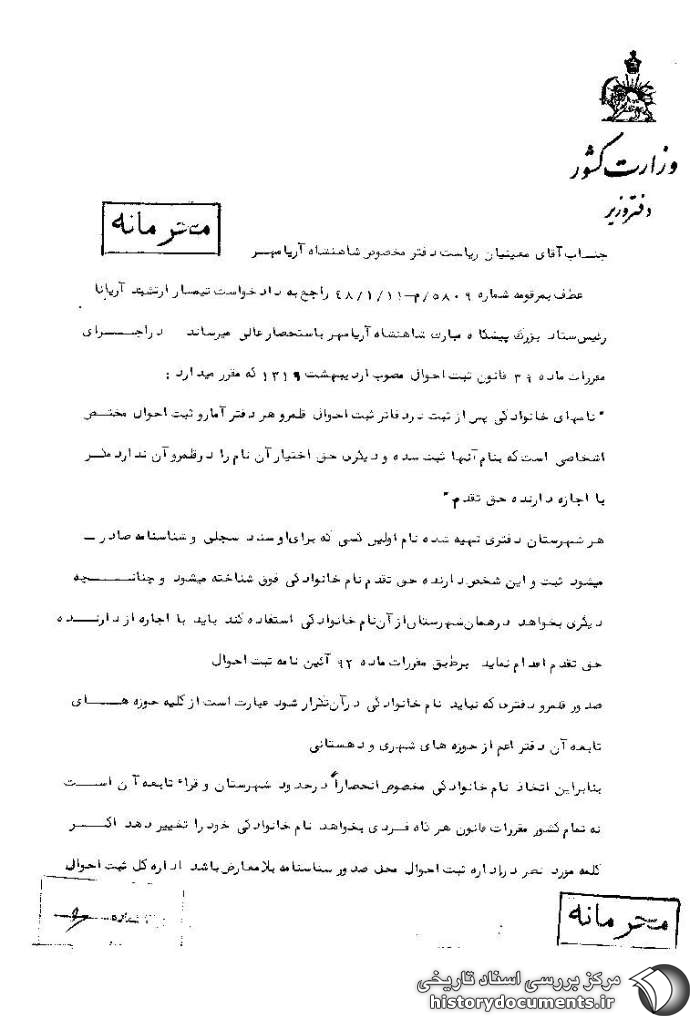 وزارت کشور
دفتر وزیر
محرمانه
جناب آقای معینیان ریاست دفتر مخصوص شاهنشاه آریامهر
عطف بمرقومه شماره ۵۸۰۹/م-۴۸/۱/۱۱ راجع به دادخواست تیمسار ارتشبد آریانا
رئیس ستاد بزرگ پیشگاه مبارک شاهنشاه آریامهر باستحضار عالی میرساند در اجرای
مقررات ماده قانون ثبت احوال مصوب اردیبهشت ۱۳۱۹ که مقرر میدارد :
"نامهای خانوادگی پس از ثبت در دفاتر ثبت احوال قلمرو هر دفتر آمار و ثبت احوال مختص
اشخاصی است که بنام آنها ثبت شده و دیگری حق اختیار آن نام را در قلمرو آن ندارد مگر
با اجازه دارنده حق تقدم "
هر شهرستان دفتری تهیه شده نام اولین کسی که برای او سند سجلی و شناسنامه صادر ــ
میشود ثبت و این شخص دارنده حق تقدم نام خانوادگی فوق شناخته میشود و چنانچه
دیگری بخواهد در همان شهرستان از آن نام خانوادگی استفاده کند باید با اجازه دارنده
حق تقدم اقدام نماید برطبق مقررات ماده ۹۲ آئین نامه ثبت احوال
صدور قلمرو دفتری که نباید نام خانوادگی در آن تکرار شود عبارت است از کلیه حوزه های
تابعه آن دفتر اعم از حوزه های شهری و دهستانی
بنابراین اتخاذ نام خانوادگی مخصوص انحصاراً در حدود شهرستان و قراء تابعه آن است
نه تمام کشور مقررات قانون هر گاه فردی بخواهد نام خانوادگی خود را تغییر دهد اگر
کلمه مورد نظر در اداره ثبت احوال محل صدور شناسنامه بلامعارض باشد اداره کل ثبت احوال
محرمانه
مرکز بررسی اسناد تاریخی
historydocuments.ir